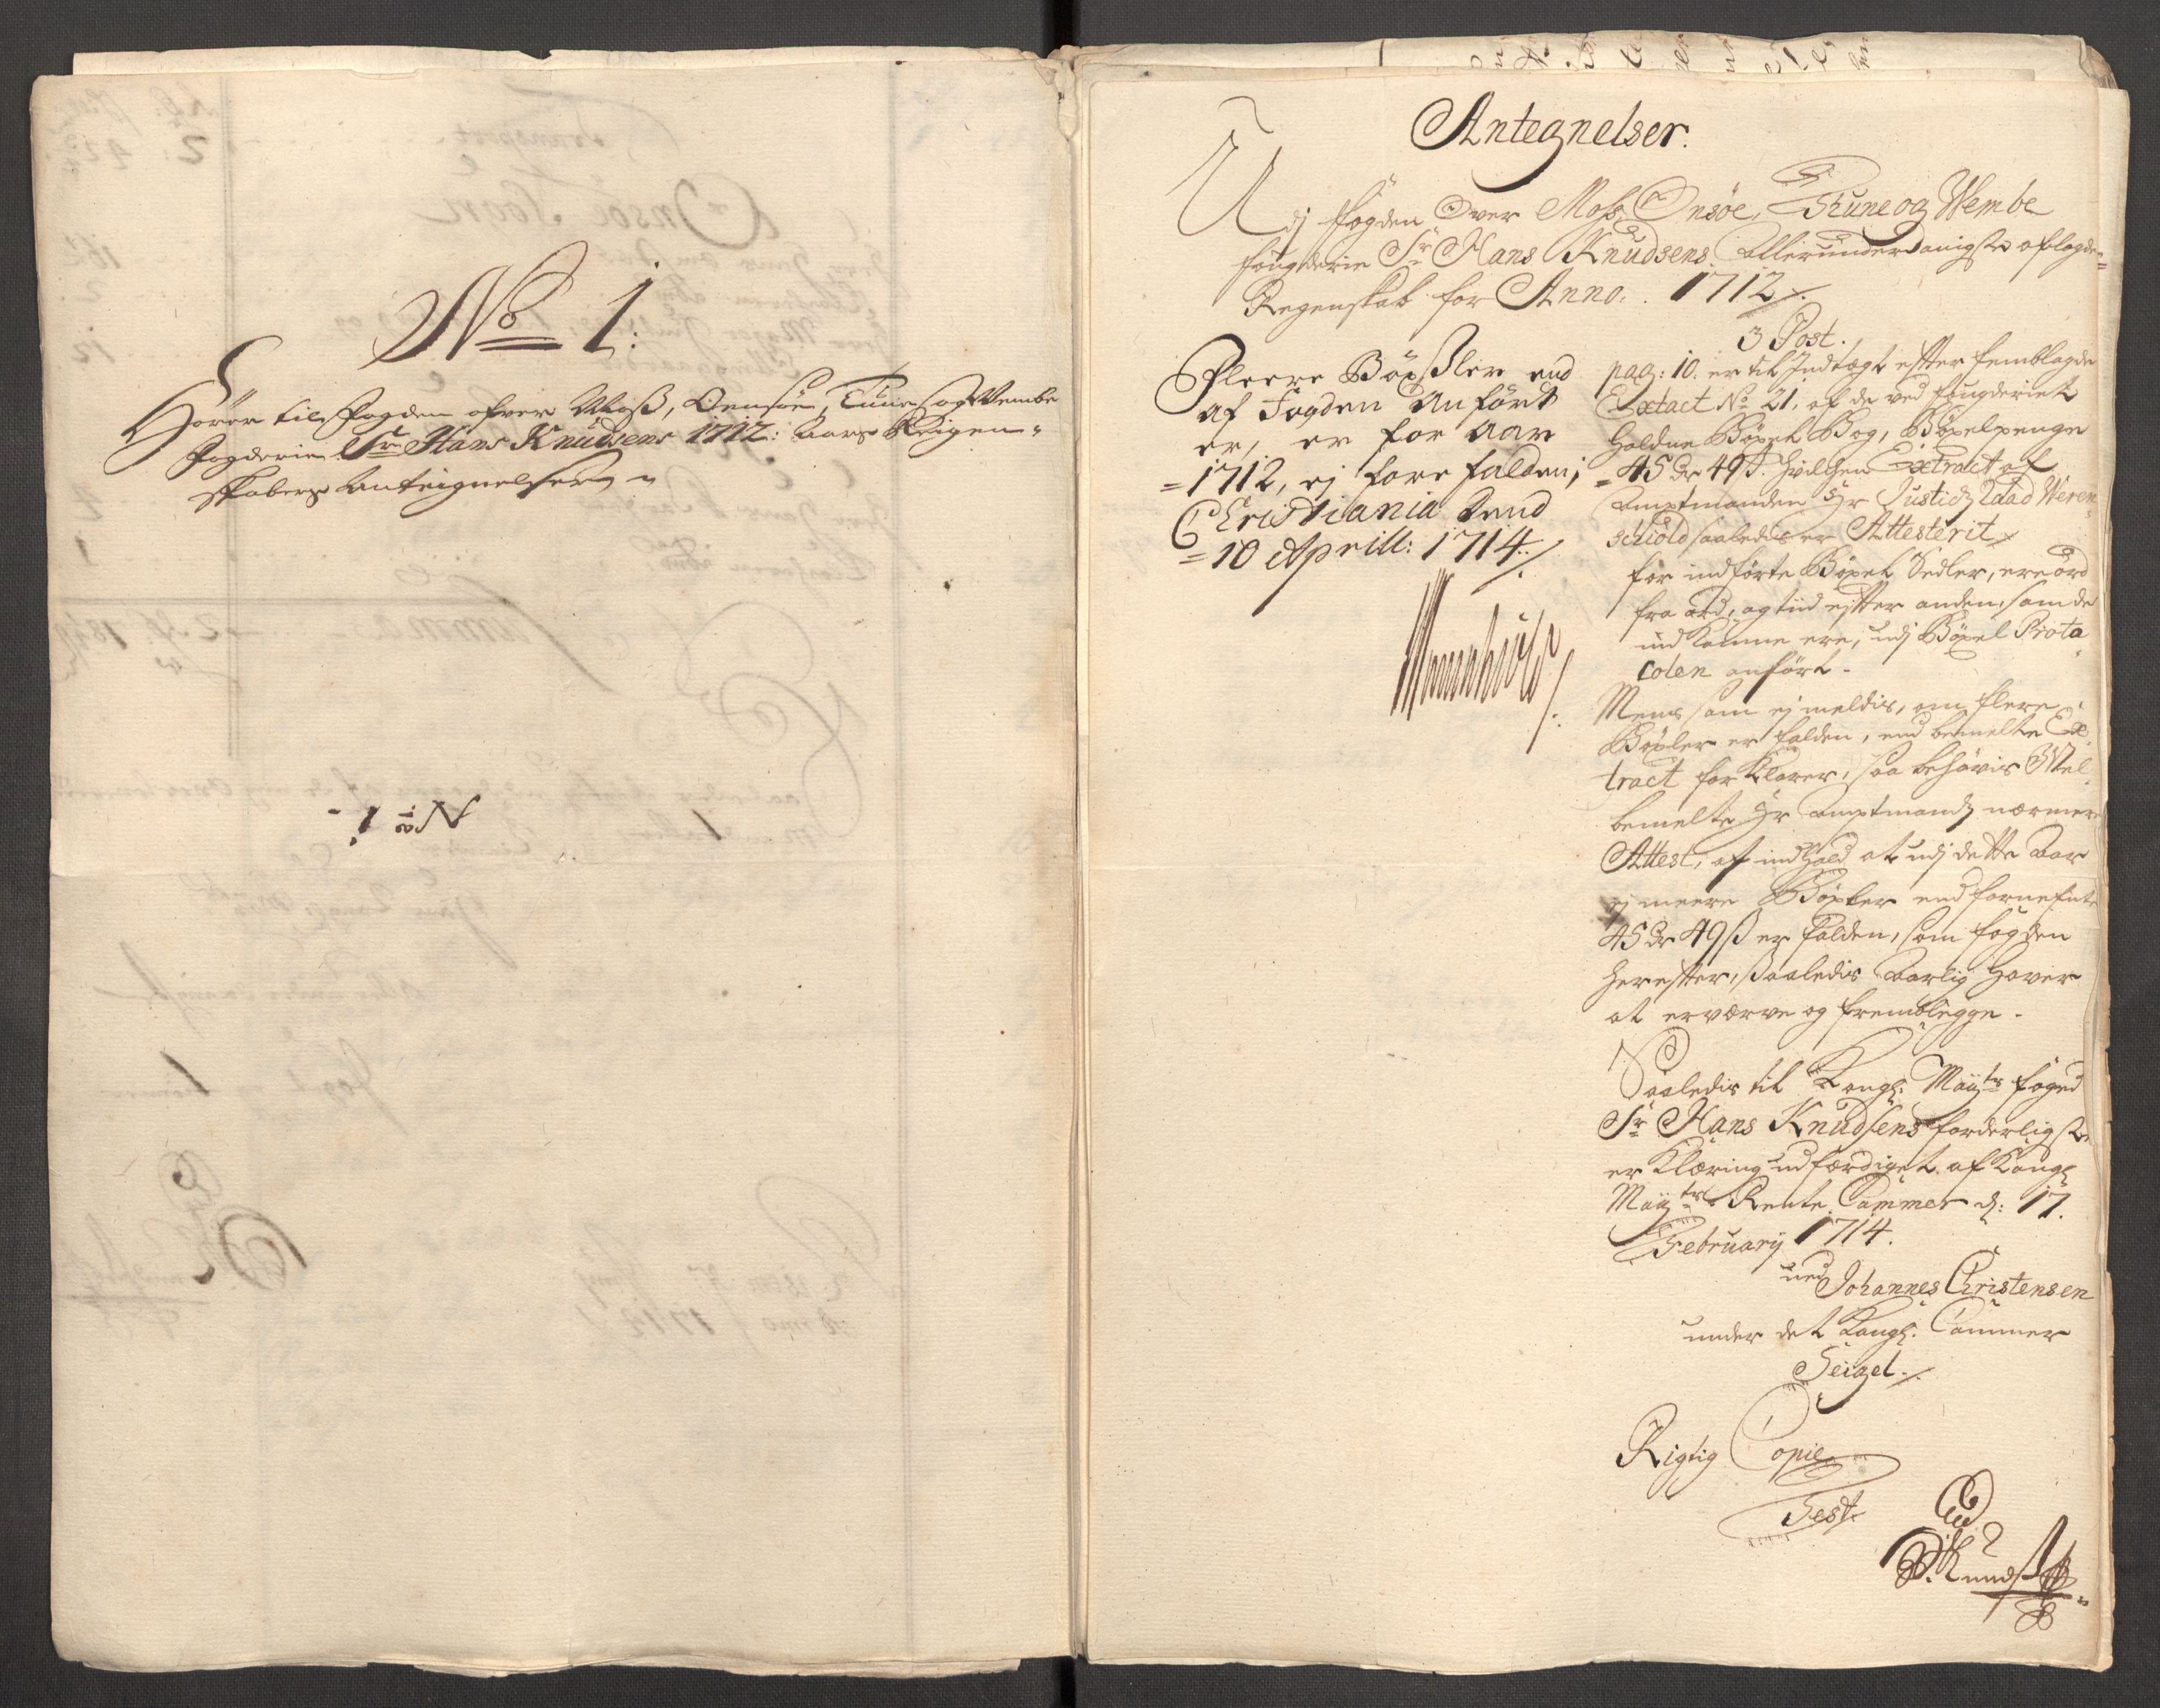 No 1:
Hörer til Fogden ofver Moss, Onsöe, Tune og Wembe
Fogderie Sr. Hans Knudsens 1712: Aars Reigen-
skabers Anteignelser
No 1.
Antegnelser.
Udj fogden Over Moss, Onsöe, Thune og Wembe
fougderie Sr. Hans Knudsens Allerunderdanigste aflagde
Regenskab for Anno. 1712.
3 Post.
Fleere Böxsler end
af Fogden anfört
er, er for aar
1712, ej forefalden;
Christiania dend
10 Aprill: 1714.
pag: 10. er til Indtægt efter femblagde
Extact No. 21, af de ved fougderiet
holdne Böxel Bog, Böxelpenge
45 dr 49 s. hvilchen Extract af
Amptmanden Hr Justitz Raad Weren-
schiold saaledes er Attesterit
for indförte Böxel Sedler, ere ord
fra ord, og tiid efter anden, som de
indkomne ere, udj Böxel Proto
colen anfört.
Mens som ej meldis, om flere
Böxler er falden, end bemelte Ex-
tract forklarer, saa behövis Wel-
bemelte Hr Amptmandz nærmere
Attest, af indhold at udj dette Aar
ej meere Böxler end fornefnte
45 dr 49 s er falden, som fogden
herefter, saaledis Aarlig haver
at erværve og fremblegge.
Saaledis til Kongl: Mayts foged
Sr Hans Knudsens forderligste
erklæring udfærdiget af Kongl
Mayts Rente Cammer d: 17.
February 1714.
Johannes Christensen
under det Kongl: Cammer
Seigel.
Rigtig Copie
Test.